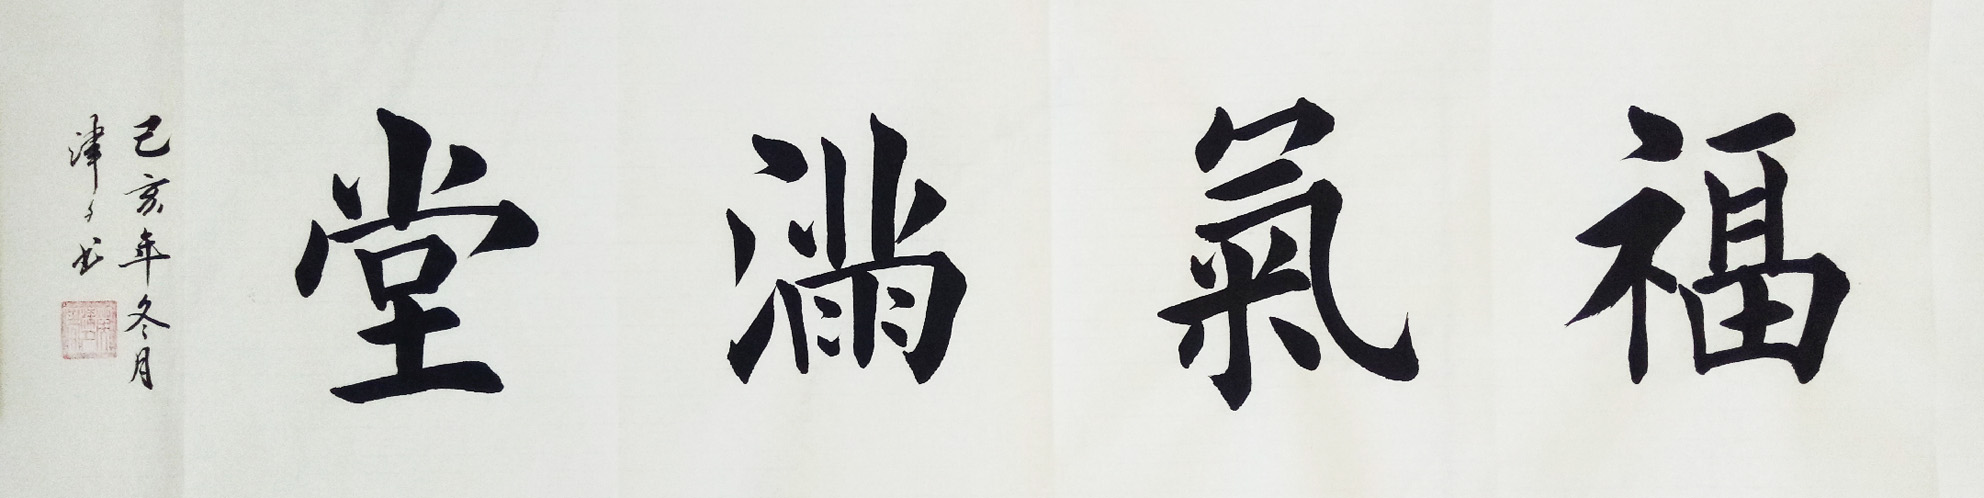 福氣滿堂
己亥年冬月
津子书